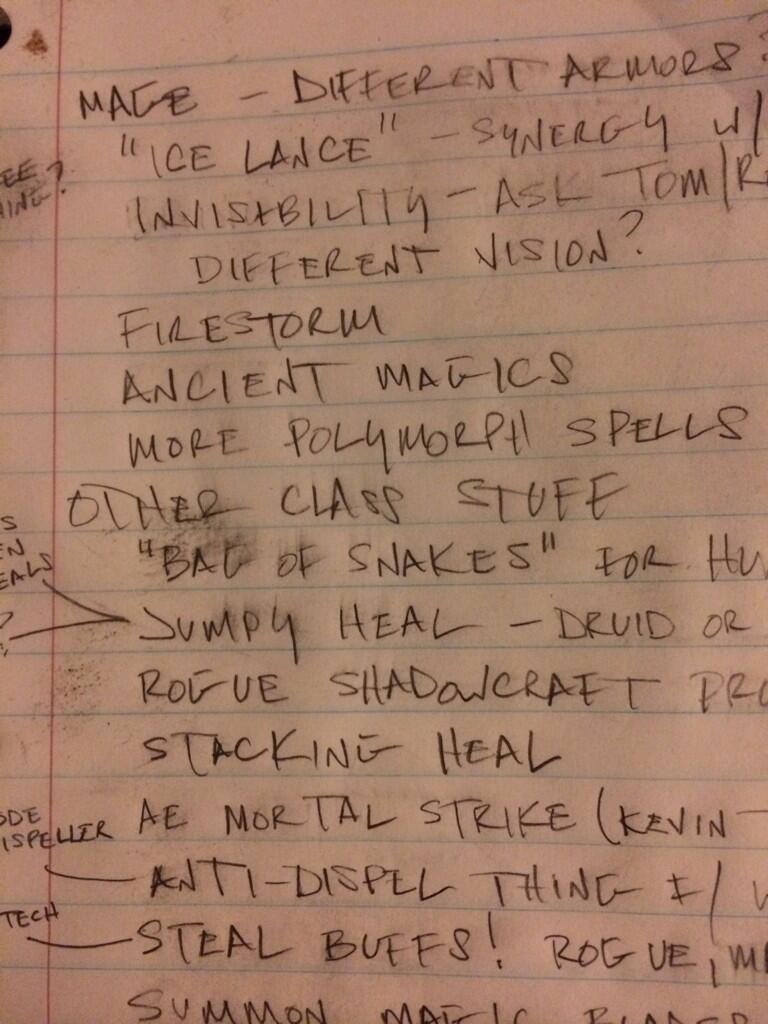 MAGE - DIFFERENT ARMORS?
"ICE LANCE" - SYNERGY W/
INVISABILITY - ASK TOM/R
DIFFERENT VISION?
FIRESTORM
ANCIENT MAGICS
MORE POLYMORPH SPELLS
OTHER CLASS STUFF
"BAG OF SNAKES" FOR HU
JUMPY HEAL - DRUID OR
ROGUE SHADOWCRAFT PRO
STACKING HEAL
AE MORTAL STRIKE (KEVIN -
ANTI-DISPEL THING F/
STEAL BUFFS! ROGUE, MA
SUMMON MAGIC
EE
HING?
S
EN
EALS
?
ODE
ISPELLER
TECH